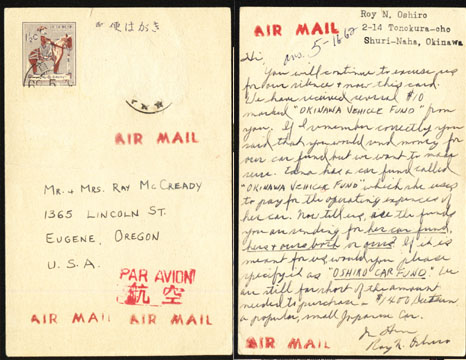 郵便はがき
AIR MAIL
MR. & MRS. RAY McCREADY
1365 LINCOLN ST.
EUGENE, OREGON
U.S.A.
PAR AVION
航空
AIR MAIL AIR MAIL
AIR MAIL
Roy N. Oshiro
2-14 Tonokura-cho
Shuri-Naha, Okinawa
Hi,
You will continue to excuse us
for our silence & now this card.
We have received several $10
marked "OKINAWA VEHICLE FUND" from
you. If I remember correctly you
said that you would send money for
our car fund but we want to make
sure. has a car fund called
"OKINAWA VEHICLE FUND" which she uses
to pay for the operating expenses of
her car. Now tell us, are the funds
you are sending for her car fund,
hers & ours both or ours? If it is
meant for us, would you please
specify it as "OSHIRO CAR FUND." We
are still far short of the amount
needed to purchase a $1400 Datsun
a popular, small Japanese car.
In Him
Roy N. Oshiro
AIR MAIL